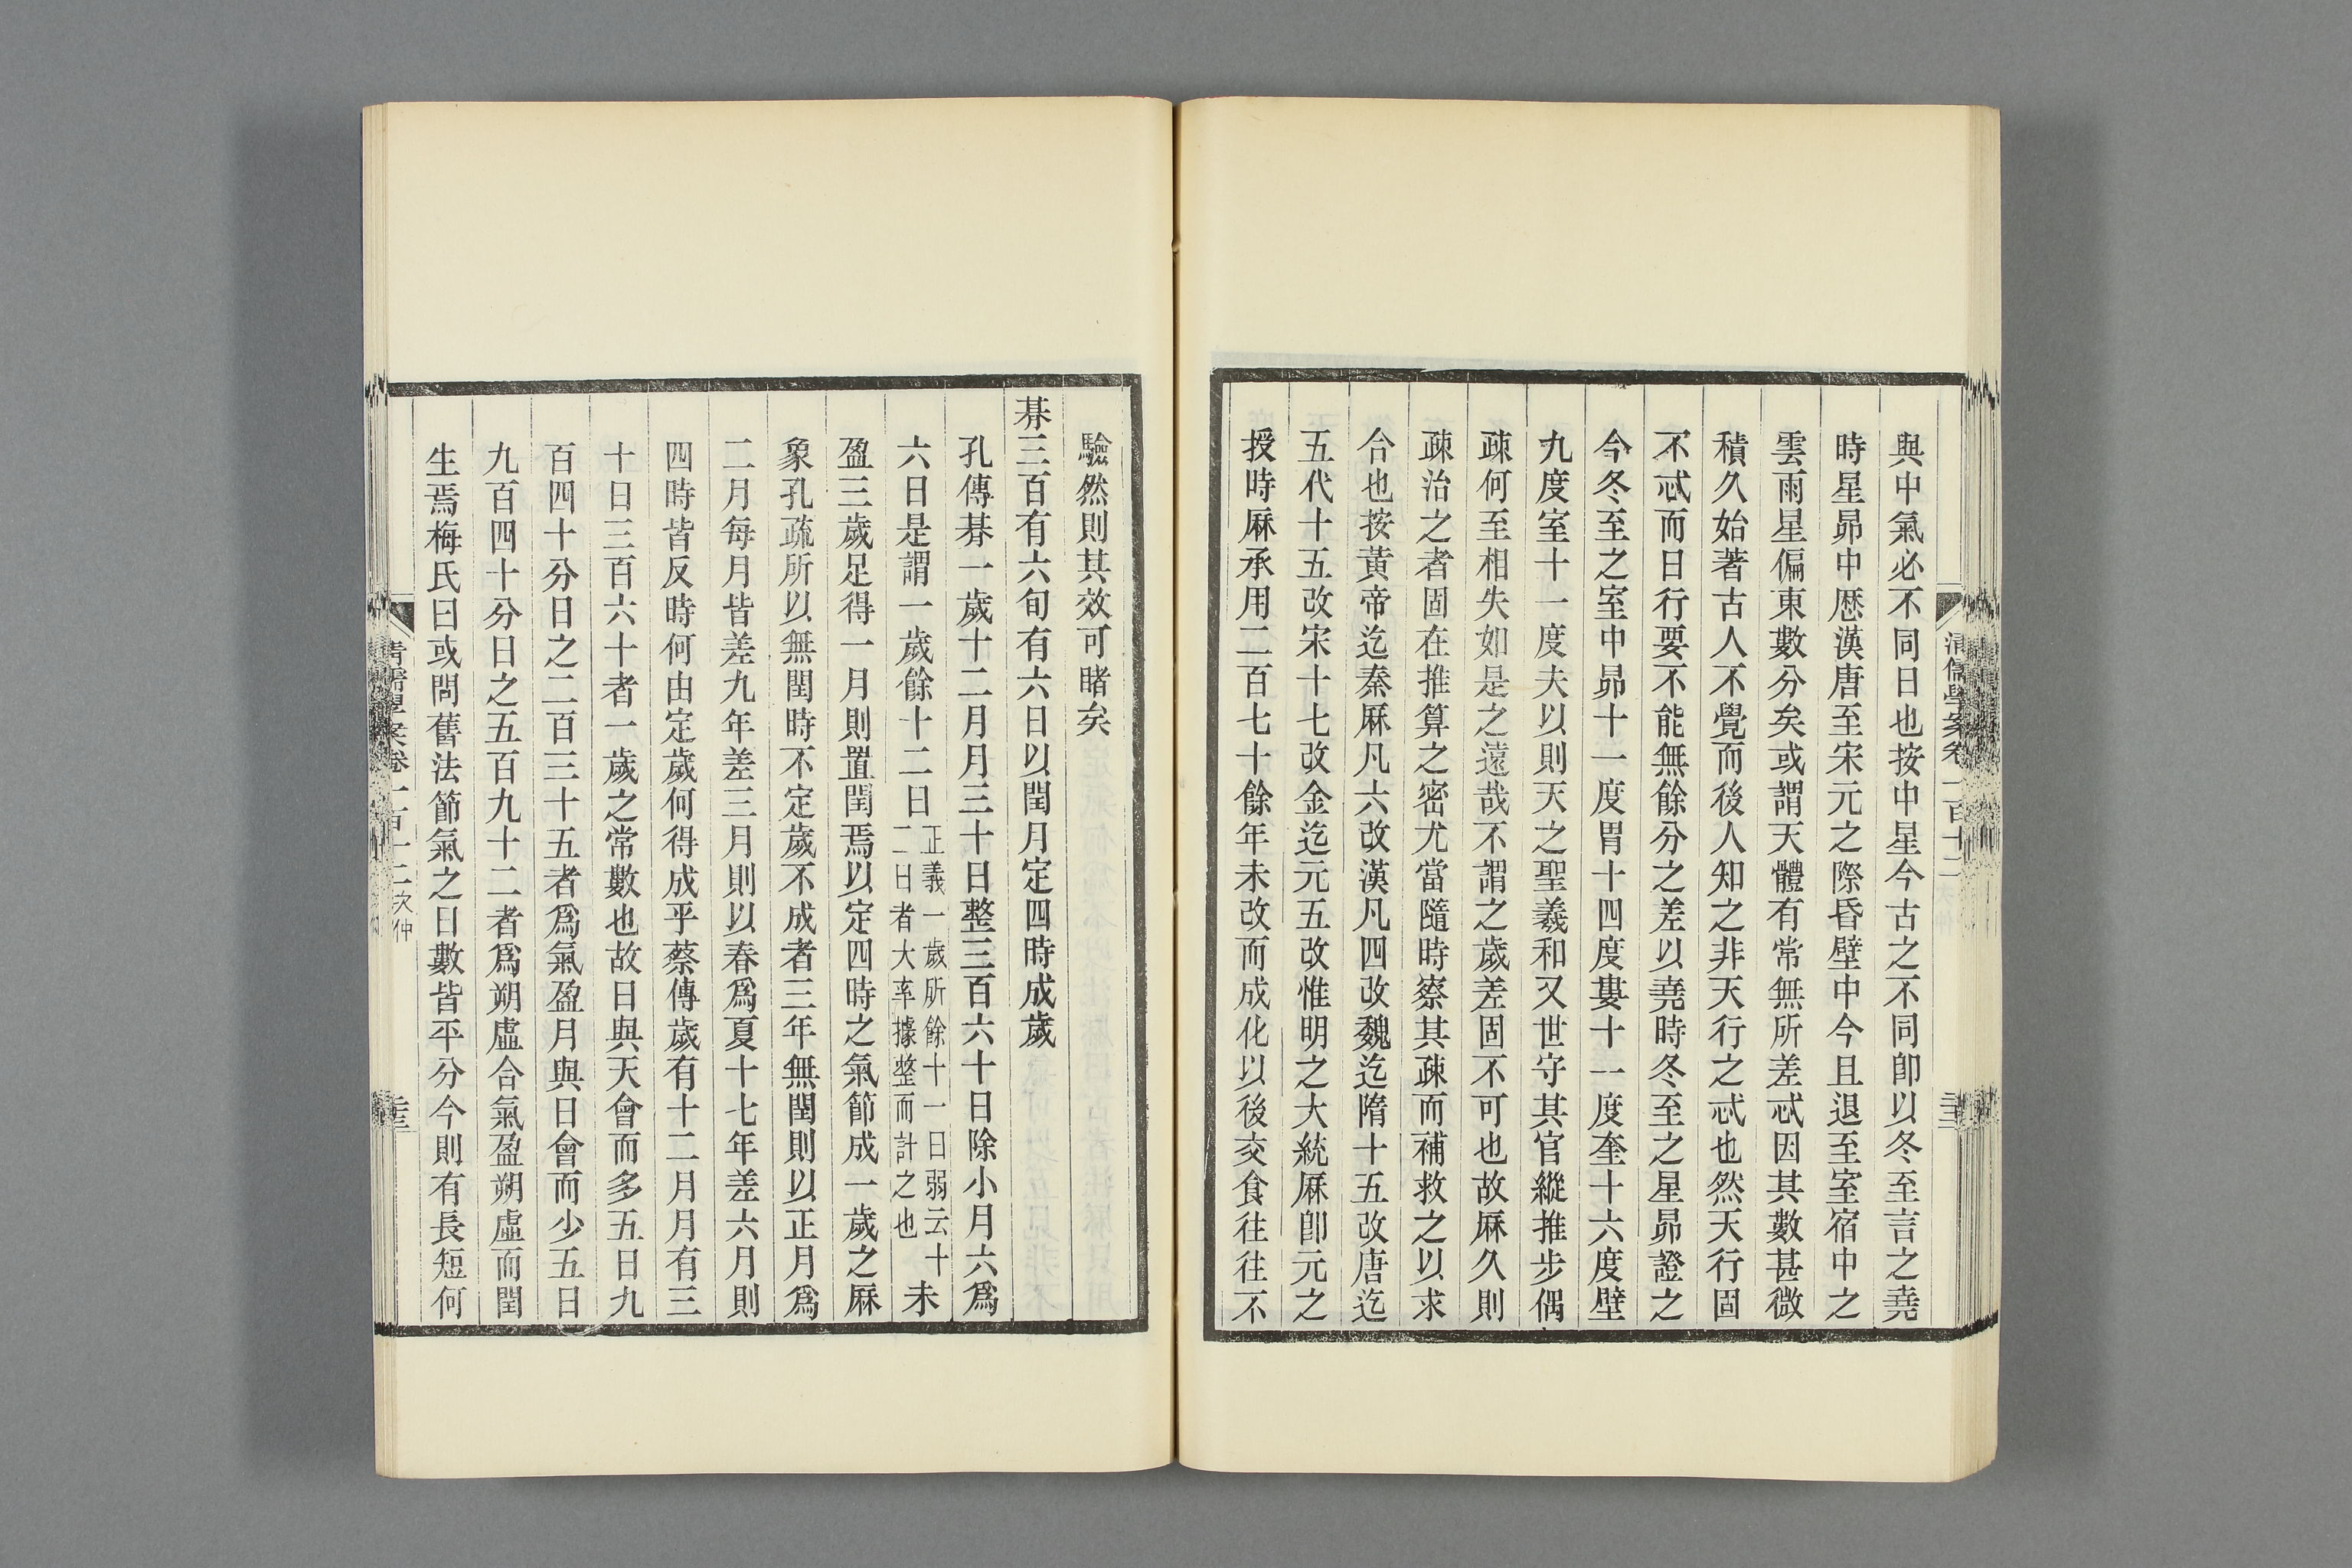 清儒學案卷一百十二
與中氣必不同日也按中星今古之不同卽以冬至言之堯
時星昴中厯漢唐至宋元之際昏壁中今且退至室宿中之
雲雨星偏東數分矣或謂天體有常無所差忒因其數甚微
積久始著古人不覺而後人知之非天行之忒也然天行固
不忒而日行要不能無餘分之差以堯時冬至之星昴證之
今冬至之室中昴十一度胃十四度婁十一度奎十六度壁
九度室十一度夫以則天之聖羲和又世守其官縱推步偶
疎何至相失如是之遠哉不謂之歲差固不可也故厤久則
疎治之者固在推算之密尤當隨時察其疎而補救之以求
合也按黃帝迄秦厤凡六改漢凡四改魏迄隋十五改唐迄
五代十五改宋十七改金迄元五改惟明之大統厤卽元之
授時厤承用二百七十餘年未改而成化以後交食往往不
驗然則其效可睹矣
朞三百有六旬有六日以閏月定四時成歲
孔傳朞一歲十二月月三十日整三百六十日除小月六爲
六日是謂一歲餘十二日正義一歲所餘十一日弱云十二日者大率據整而計之也未
盈三歲足得一月則置閏焉以定四時之氣節成一歲之厤
象孔疏所以無閏時不定歲不成者三年無閏則以正月爲
二月每月皆差九年差三月則以春爲夏十七年差六月則
四時皆反時何由定歲何得成乎蔡傳歲有十二月月有三
十日三百六十者一歲之常數也故日與天會而多五日九
百四十分日之二百三十五者爲氣盈月與日會而少五日
九百四十分日之五百九十二者爲朔虛合氣盈朔虛而閏
生焉梅氏曰或問舊法節氣之日數皆平分今則有長短何
清儒學案卷一百十二 次仲